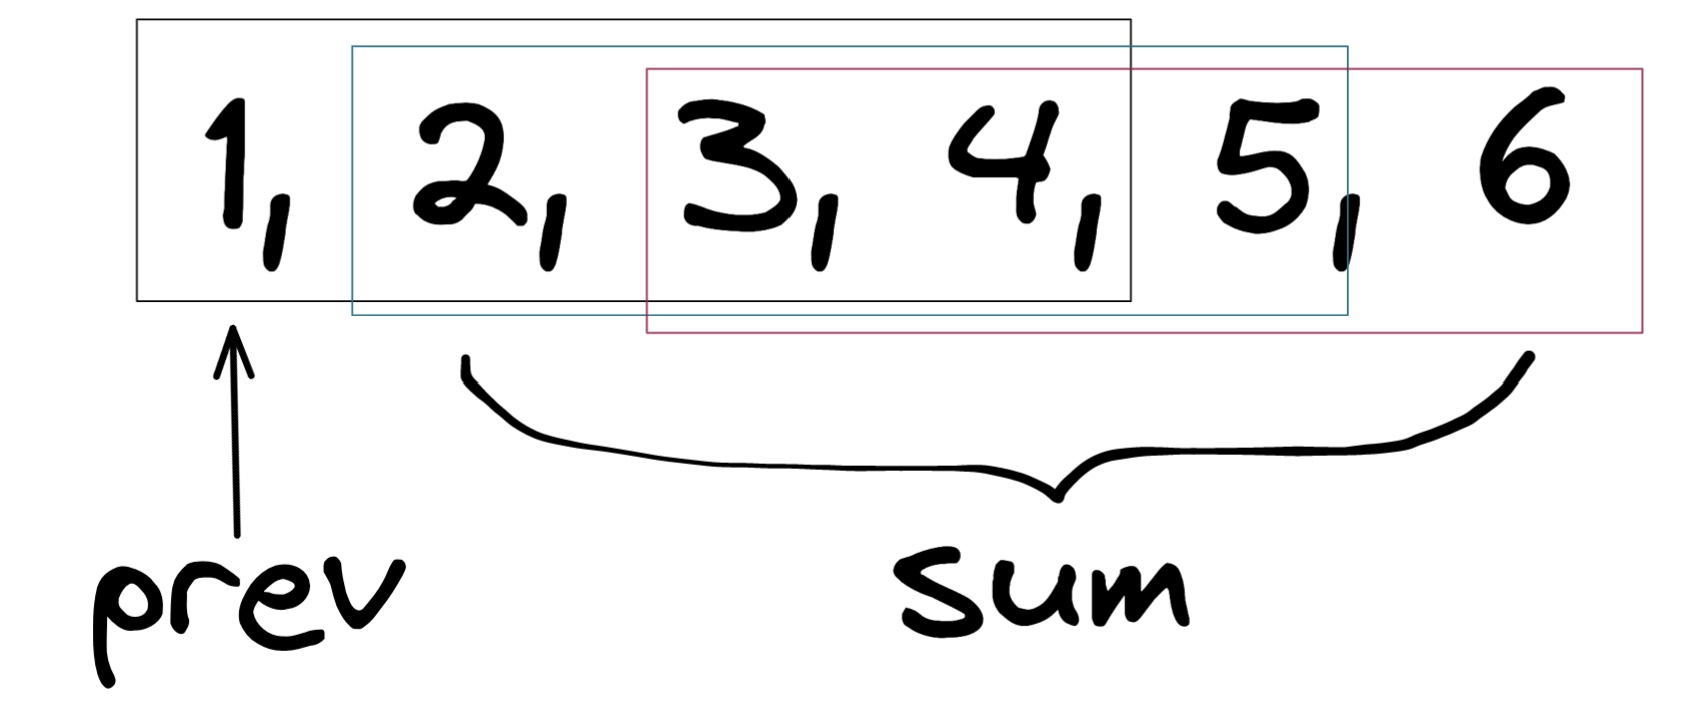 1, 2, 3, 4, 5, 6
prev sum